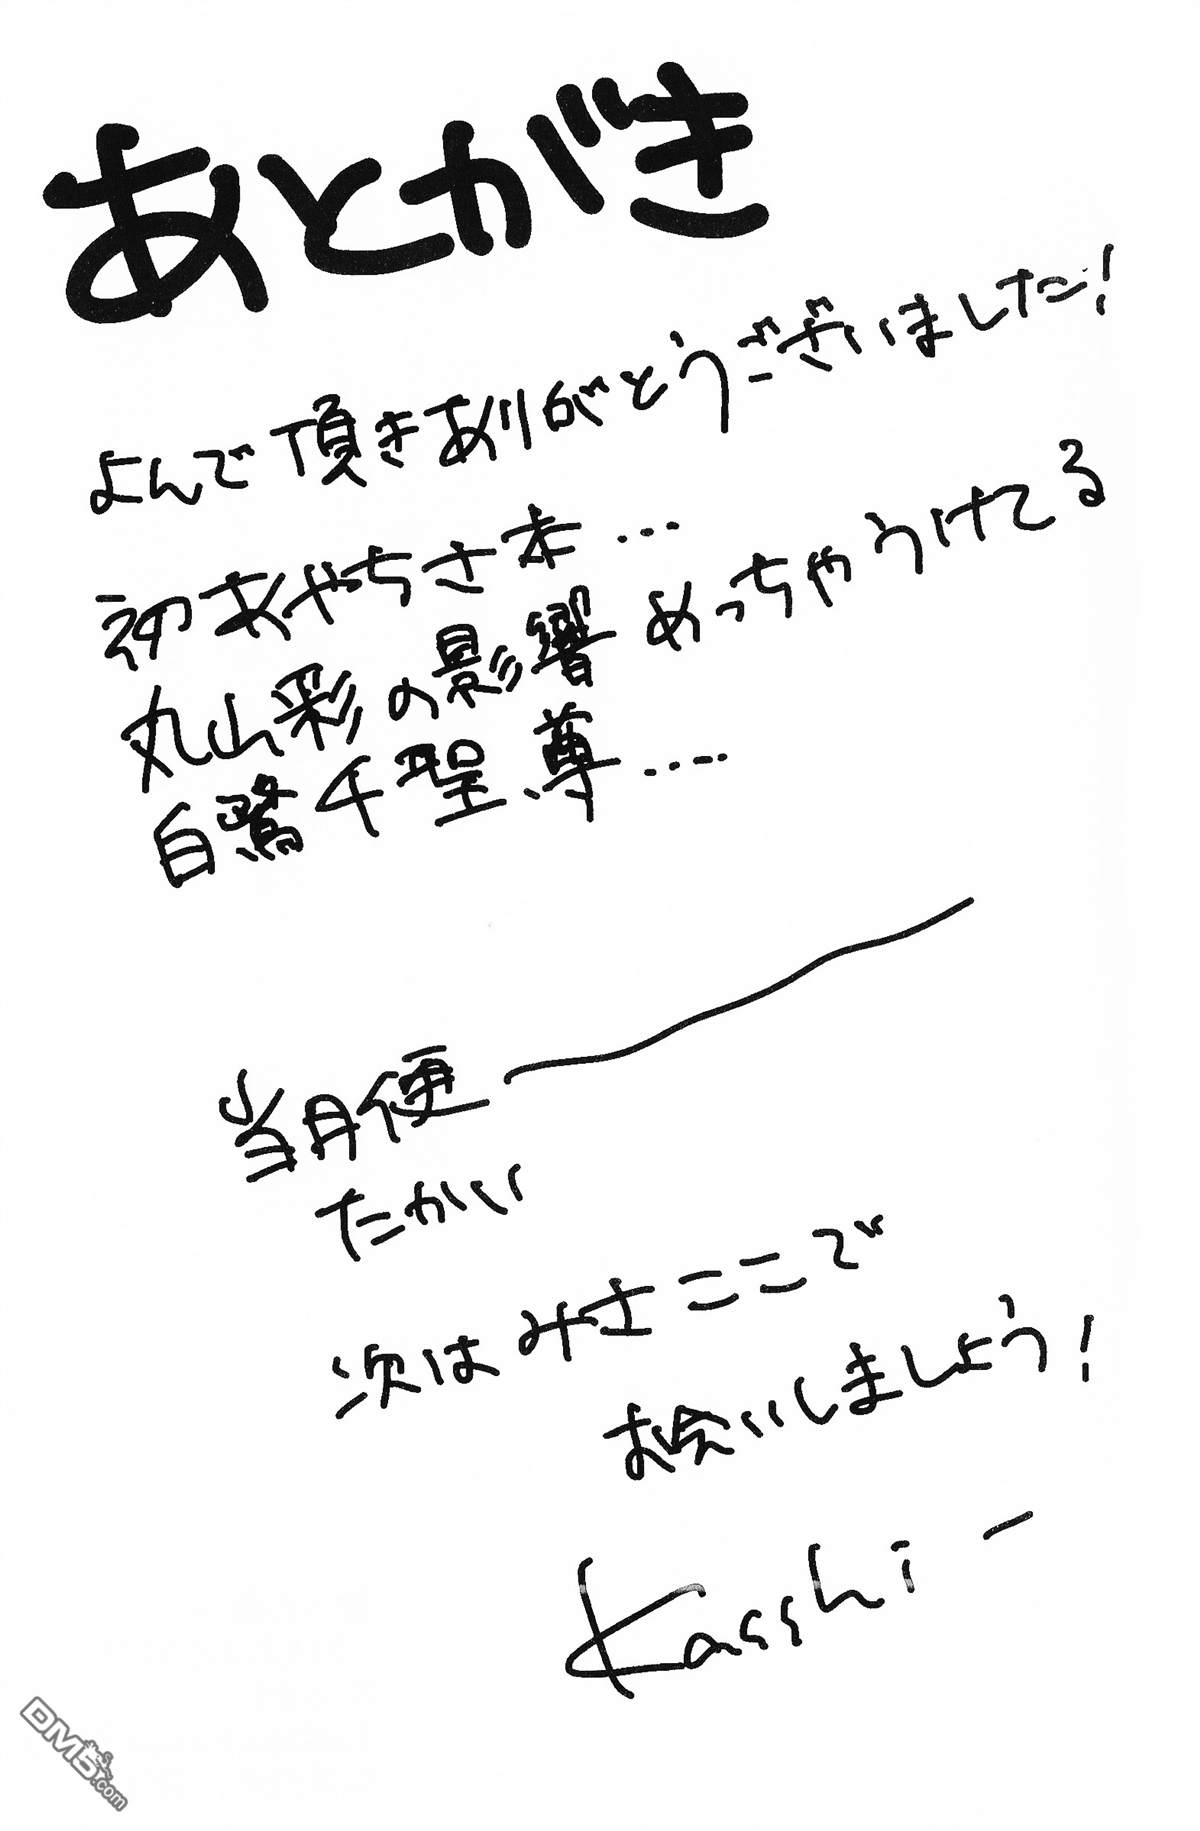 あとがき
よんで頂きありがとうございました!
初あやちさ本…
丸山彩の影響めっちゃうけてる
白鷺千聖、尊……
当日便
たかい
次はみさここで
お会いしましょう!
Kasshi-
DM5.com